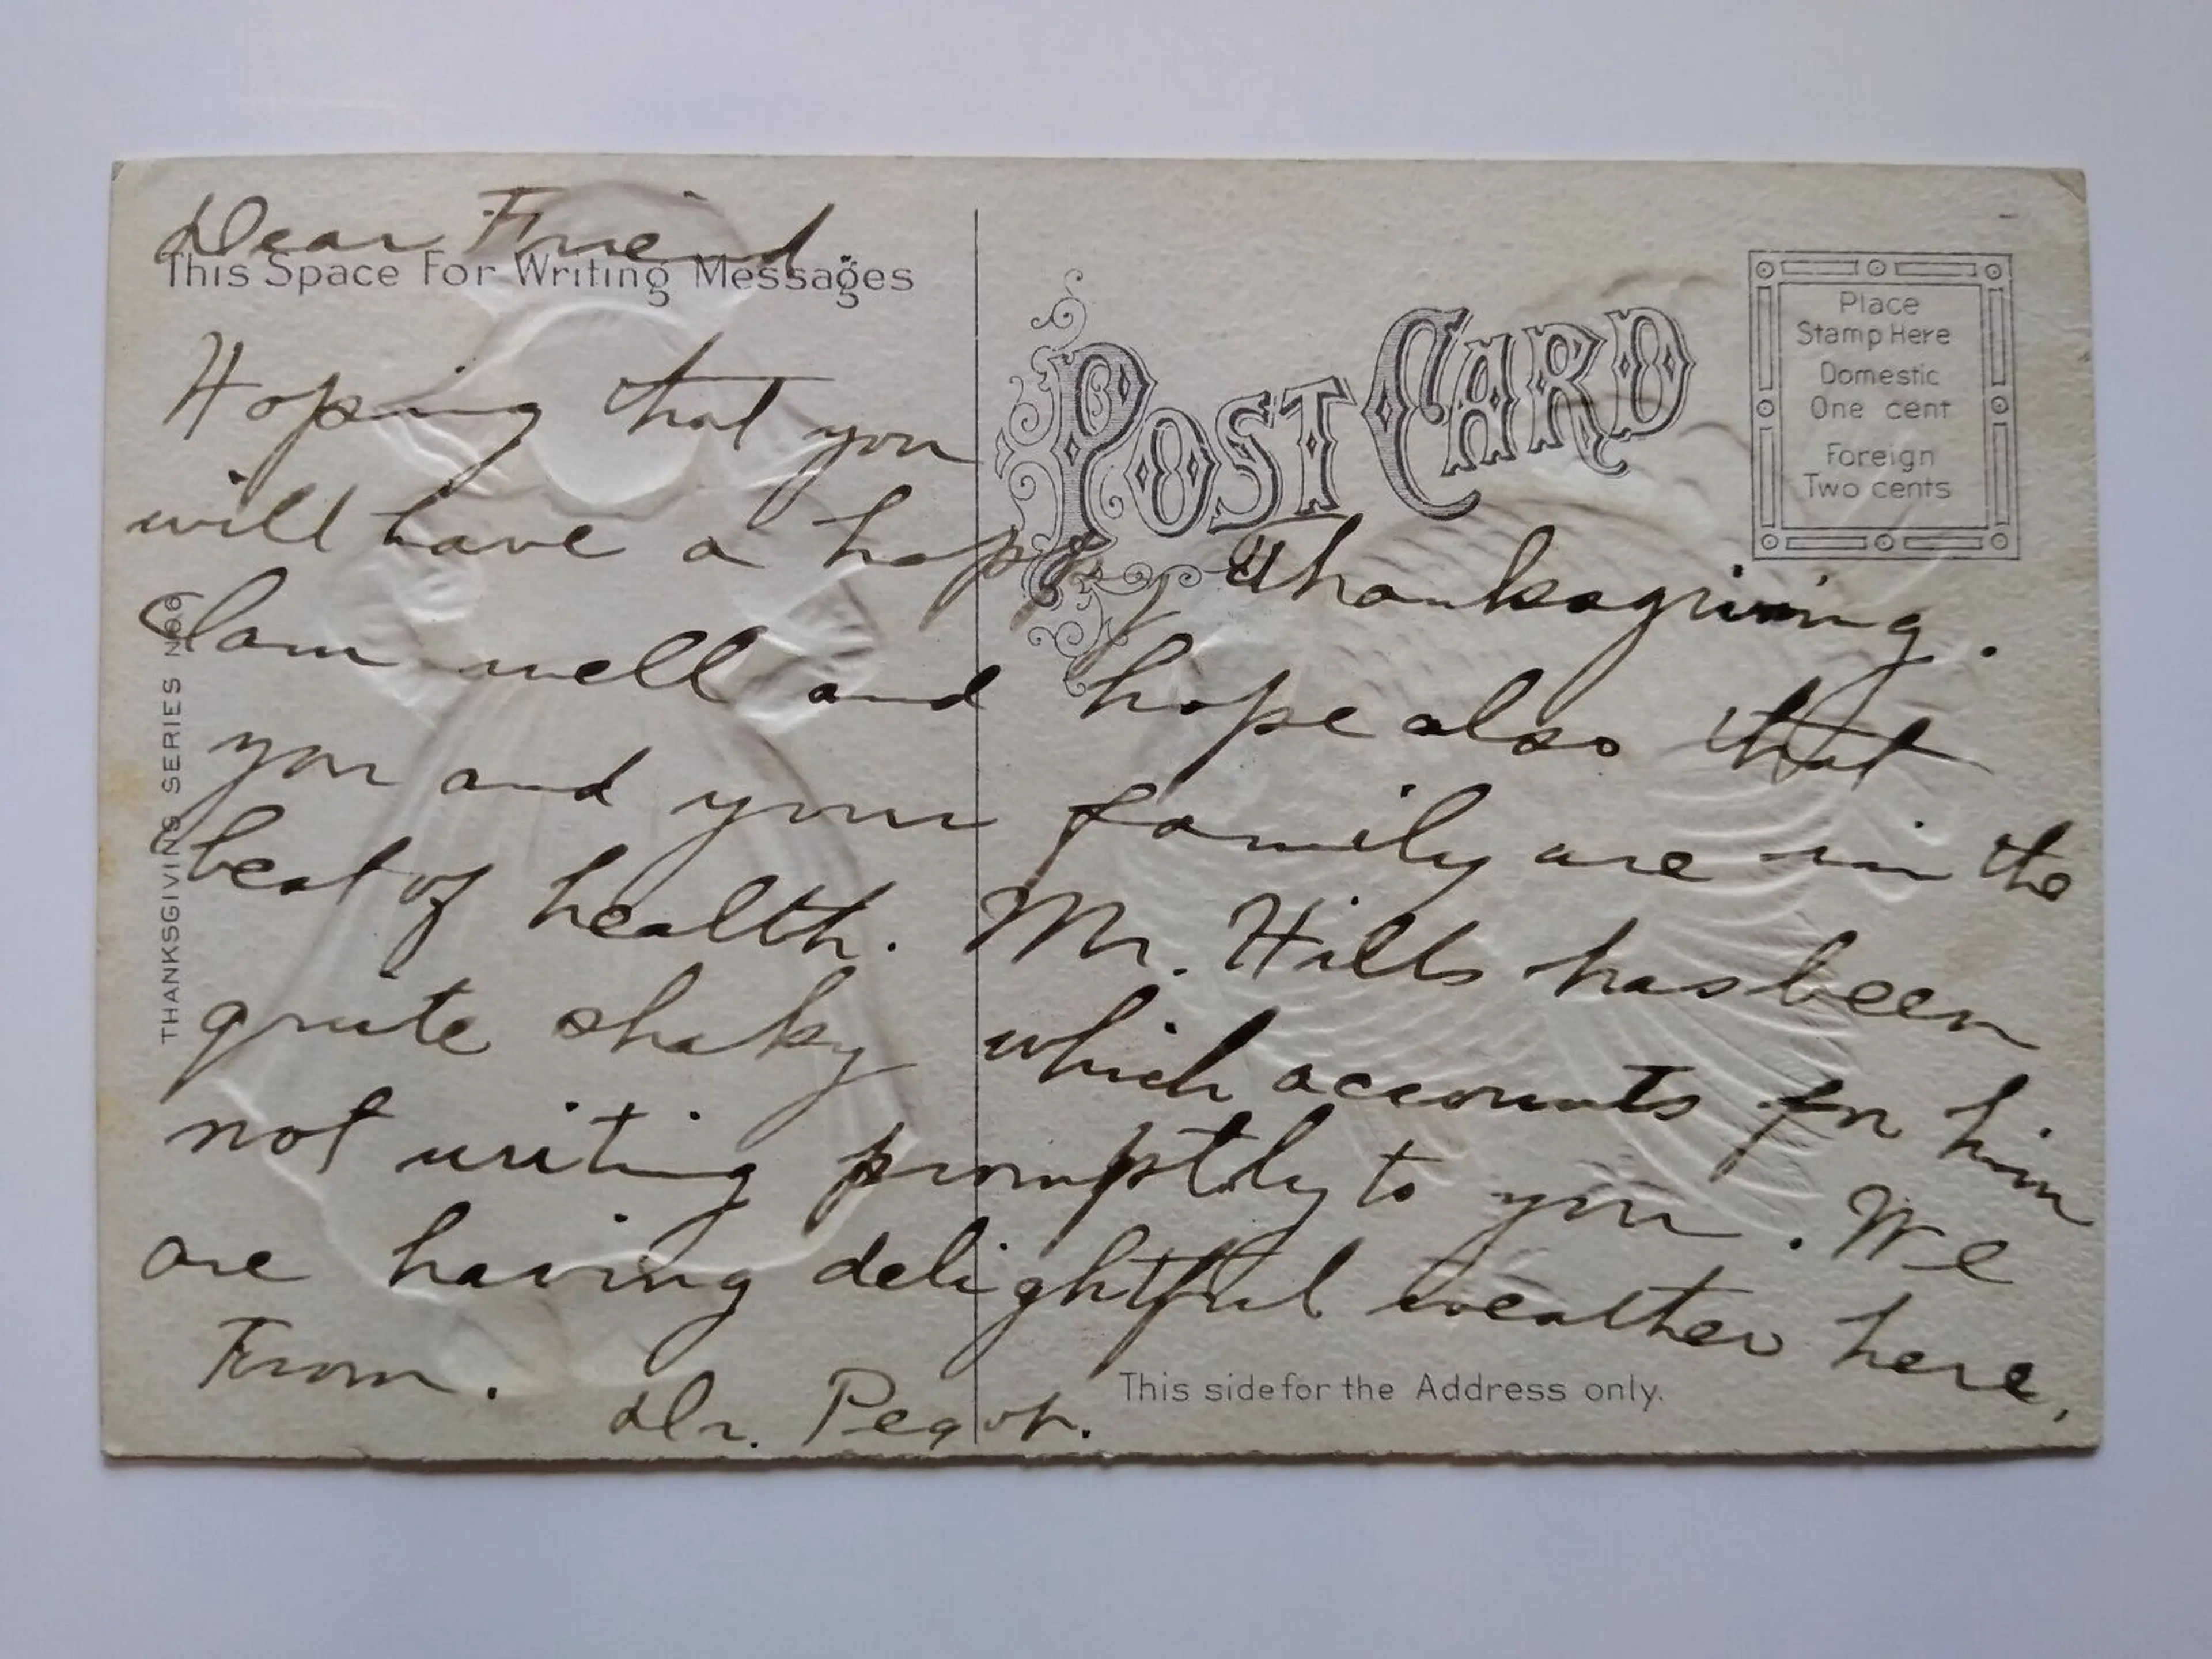 Dear Friend.
This Space For Writing Messages
POST CARD
Place
Stamp Here
Domestic
One cent
Foreign
Two cents
Hoping that you
will have a happy Thanksgiving.
I am well and hope also that
you and your family are in the
best of health. Mr. Hills has been
quite shaky which accounts for him
not writing promptly to you. We
are having delightful weather here,
From.
Dr.
This side for the Address only.
THANKSGIVING SERIES No 6